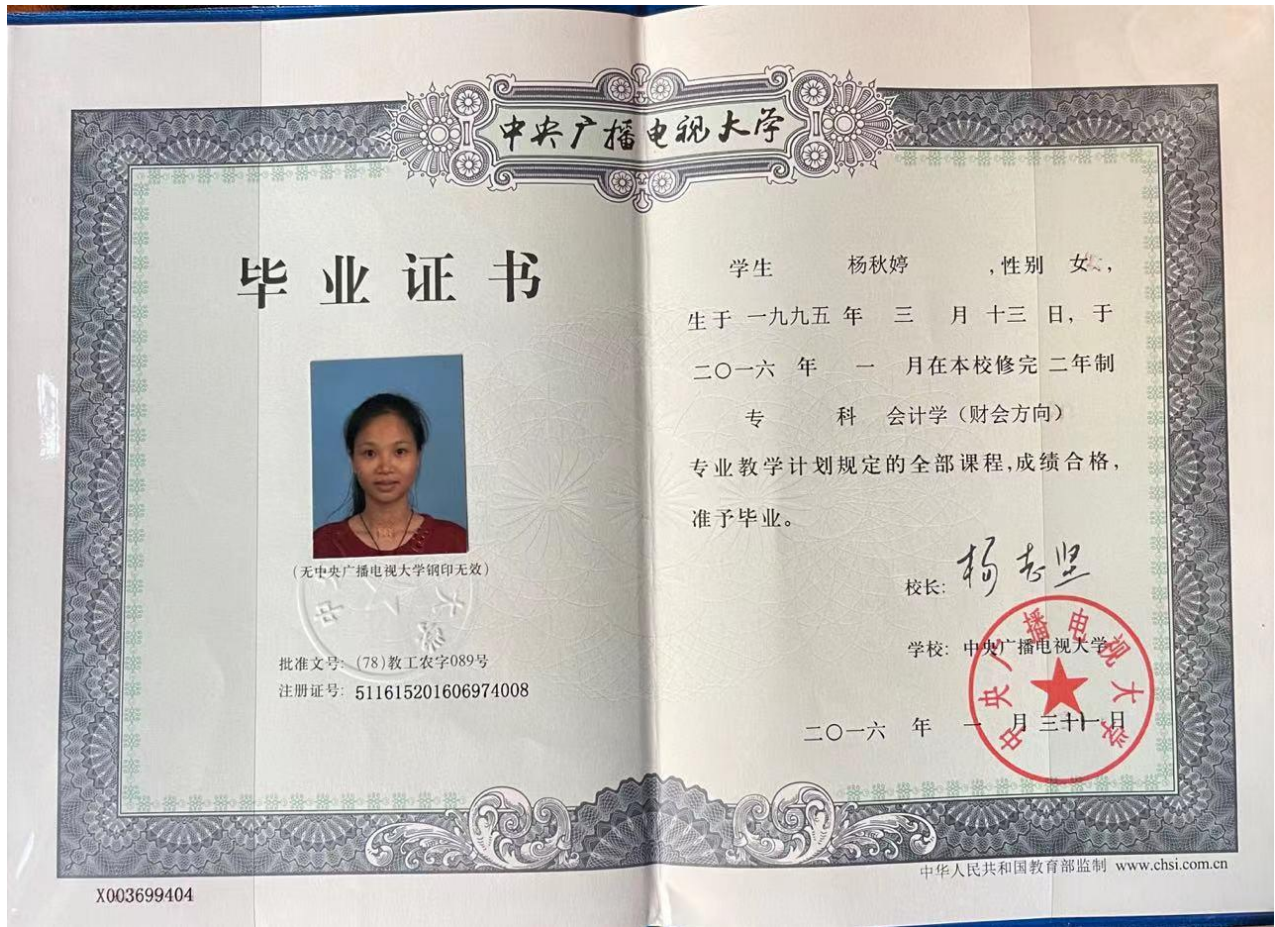 中央广播电视大学
毕业证书
(无中央广播电视大学钢印无效)
批准文号: (78)教工农字089号
注册证号: 511615201606974008
X003699404
学生 杨秋婷 ,性别 女,
生于 一九九五 年 三 月 十三 日, 于
二〇一六 年 一 月在本校修完 二年制
专 科 会计学（财会方向）
专业教学计划规定的全部课程,成绩合格,
准予毕业。
校长: 杨志坚
学校: 中央广播电视大学
中央广播电视大学
二〇一六 年 一 月 三十一 日
中华人民共和国教育部监制 www.chsi.com.cn